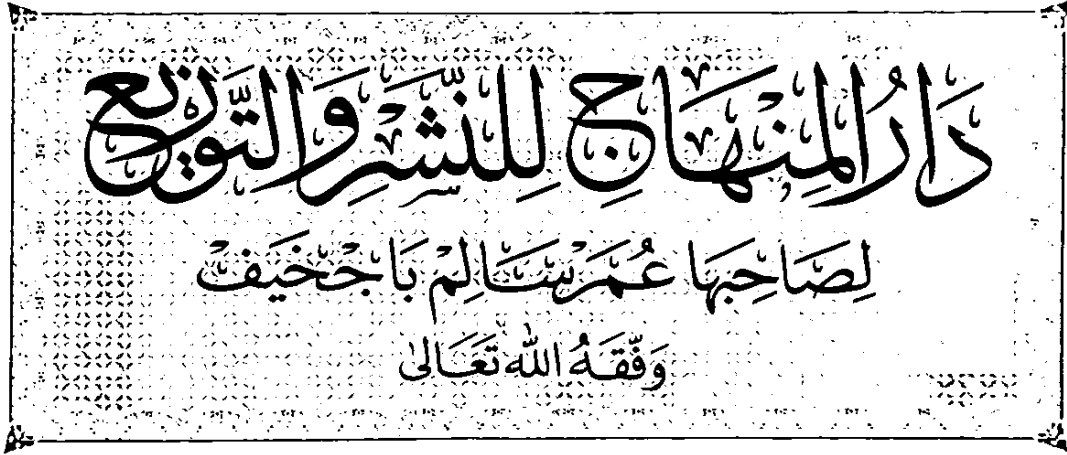 دَارُ المِنْهَاجِ لِلنَّشْرِ وَالتَّوْزِيعِ
لِصَاحِبِهَا عُمَرْسَالِمْ بَاجْخَيفْ
وَفَّقَهُ الله تَعَالىٰ